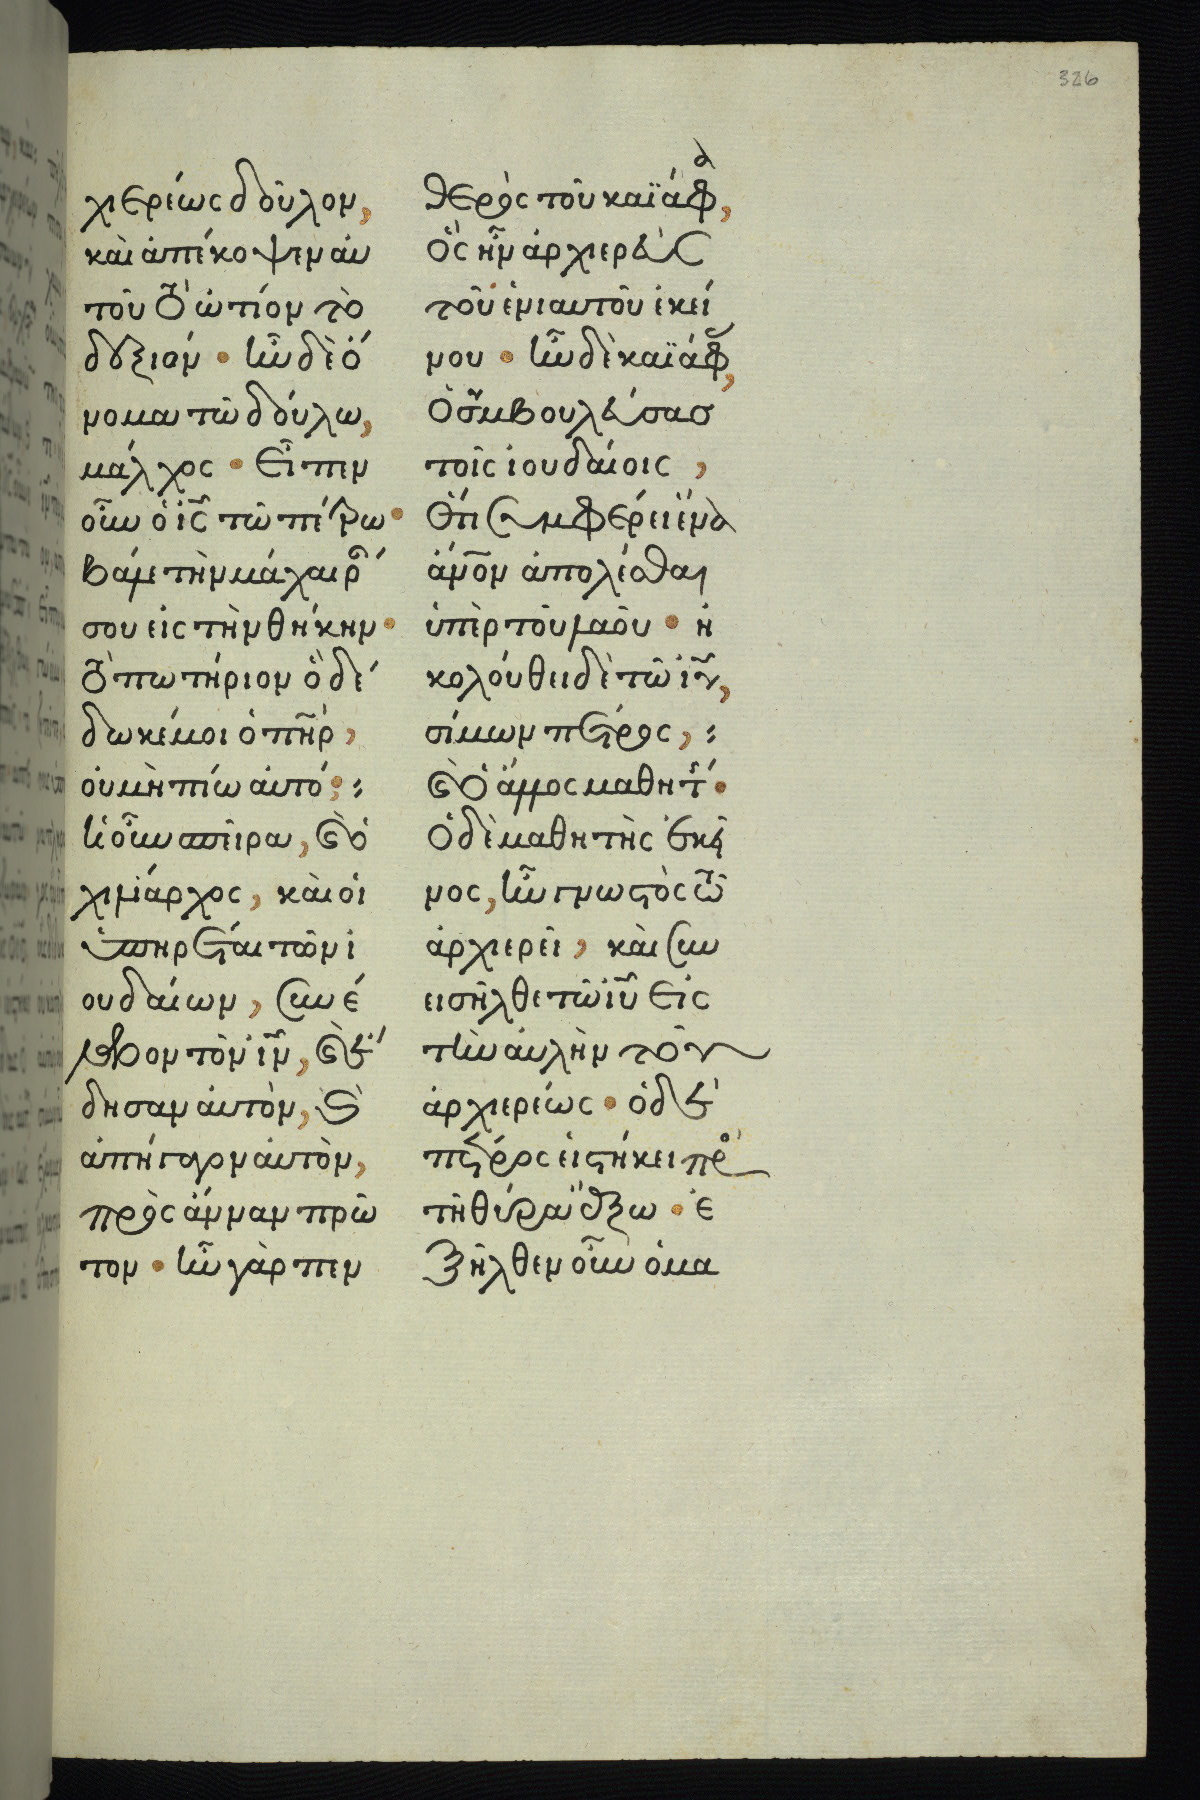 326
χιερέως δοῦλον,
καὶ ἀπέκοψεν αὐ
τοῦ τὸ ὠτίον τὸ
δεξιόν · ἦν δὲ ὄ
νομα τῶ δούλω,
μάλχος · εἶπεν
οὖν ὁ ις τῶ πέτρω ·
βάλε τὴν μάχαιρ
σου εἰς τὴν θήκην ·
τὸ πωτήριον ὃ δέ
δωκέ μοι ὁ πηρ,
οὐ μὴ πίω αὐτό ;
ἡ οὖν σπεῖρα, καὶ ὁ
χιλίαρχος, καὶ οἱ
ὑπηρέται τῶν ἰ
ουδαίων, συνέ
λαβον τὸν ιν, καὶ ἔ
δησαν αὐτὸν, καὶ
ἀπήγαγον αὐτὸν,
πρὸς ἄνναν πρῶ
τον · ἦν γὰρ πεν
θερὸς τοῦ καϊάφα,
ὃς ἦν ἀρχιερεὺς
τοῦ ἐνιαυτοῦ ἐκεί
νου · ἦν δὲ καϊάφ,
ὁ συμβουλεύσας
τοῖς ἰουδαίοις,
ὅτι συμφέρει ἕνα
ἄνον ἀπολέσθαι
ὑπὲρ τοῦ λαοῦ · ἠ
κολούθει δὲ τῶ ιυ,
σίμων πέτρος,
καὶ ὁ ἄλλος μαθητ ·
ὁ δὲ μαθητὴς ἐκεῖ
νος, ἦν γνωστὸς τῶ
ἀρχιερεῖ, καὶ συν
εισῆλθε τῶ ιυ εἰς
τὴν αὐλὴν τοῦ
ἀρχιερέως · ὁ δὲ
πέτρος εἱστήκει πρὸ
τῆ θύρα ἔξω · ἐ
ξῆλθεν οὖν ὁ μα